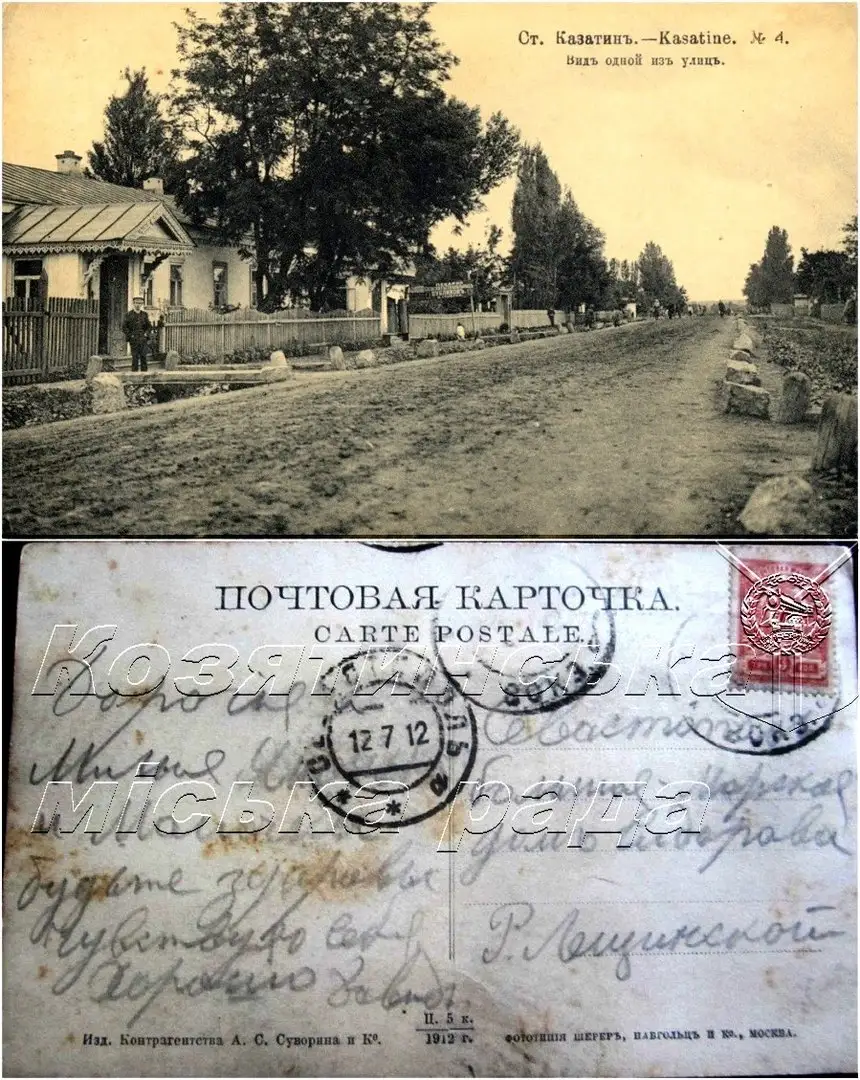 Ст. Казатинъ.—Kasatine. № 4.
Видъ одной изъ улицъ.
ПОЧТОВАЯ КАРТОЧКА.
CARTE POSTALE.
Козятинська
міська рада
12 7 12
Дорогая
Милыя
и
будьте здоровы
чувствую себя
Хорошо
Севастополь
Большая-Морская
домъ
Р. Лещинской
Изд. Контрагентства А. С. Суворина и Ко.
Ц. 5 к.
1912 г.
ФОТОТИПІЯ ШЕРЕРЪ, НАБГОЛЬЦЪ И Ко., МОСКВА.